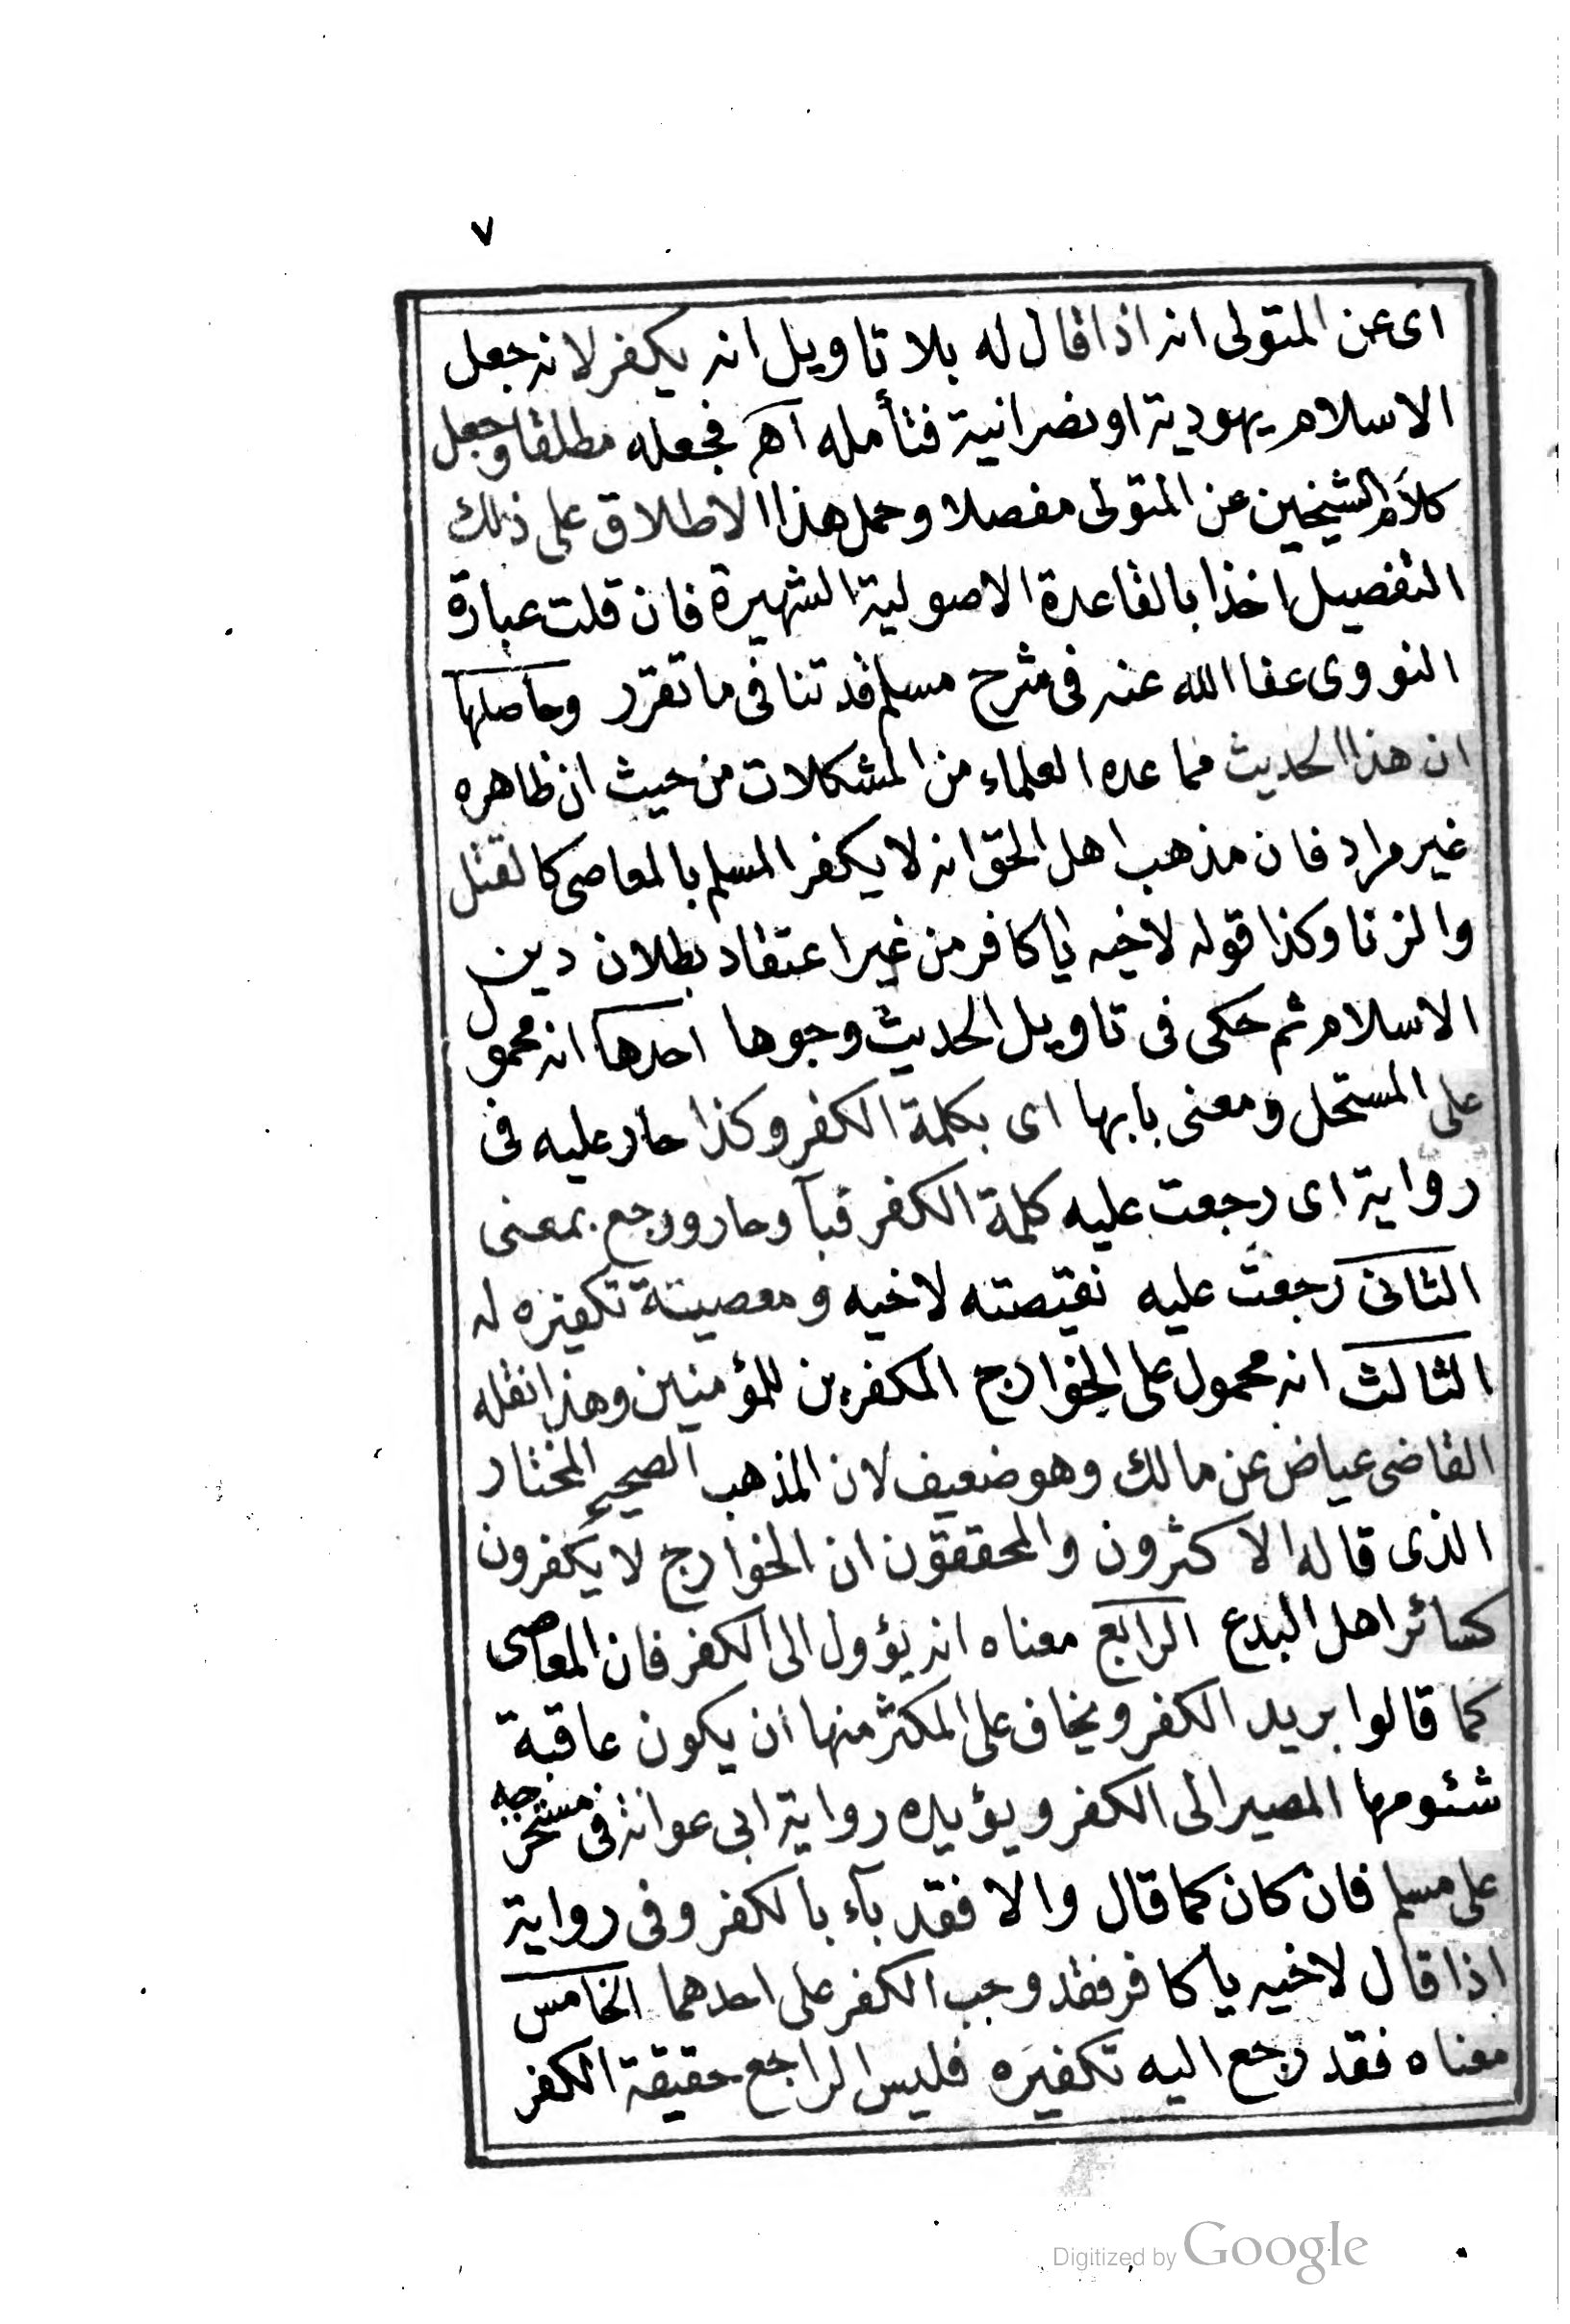 ٧
اى عن المتولى انه اذا قال له بلا تاويل انه يكفر لانه جعل
الاسلام يهودية او نصرانية فتأمله اهـ فجعله مطلقا وجعل
كلام الشيخين عن المتولى مفصلا وحمل هذا الاطلاق على ذلك
التفصيل اخذا بالقاعدة الاصولية الشهيرة فان قلت عبارة
النووى عفا الله عنه فى شرح مسلم قد تنافى ما تقرر وحاصلها
ان هذا الحديث مما عده العلماء من المشكلات من حيث ان ظاهره
غير مراد فان مذهب اهل الحق انه لا يكفر المسلم بالمعاصى كالقتل
والزنا وكذا قوله لاخيه يا كافر من غير اعتقاد بطلان دين
الاسلام ثم حكى فى تاويل الحديث وجوها احدها انه محمول
على المستحل ومعنى باء بها اى بكلمة الكفر وكذا حار عليه فى
رواية اى رجعت عليه كلمة الكفر فباء وحار ورجع بمعنى
الثانى رجعت عليه نقيصته لاخيه ومعصيتة تكفيره له
الثالث انه محمول على الخوارج المكفرين للمؤمنين وهذا نقله
القاضى عياض عن مالك وهو ضعيف لان المذهب الصحيح المختار
الذى قاله الاكثرون والمحققون ان الخوارج لا يكفرون
كسائر اهل البدع الرابع معناه انه يؤول الى الكفر فان المعاصى
كما قالوا بريد الكفر ويخاف على المكثر منها ان يكون عاقبة
شئومها المصير الى الكفر ويؤيده رواية ابى عوانة فى مستخرجه
على مسلم فان كان كما قال والا فقد بآء بالكفر وفى رواية
اذا قال لاخيه يا كافر فقد وجب الكفر على احدهما الخامس
معناه فقد رجع اليه تكفيره فليس الراجع حقيقة الكفر
Digitized by Google